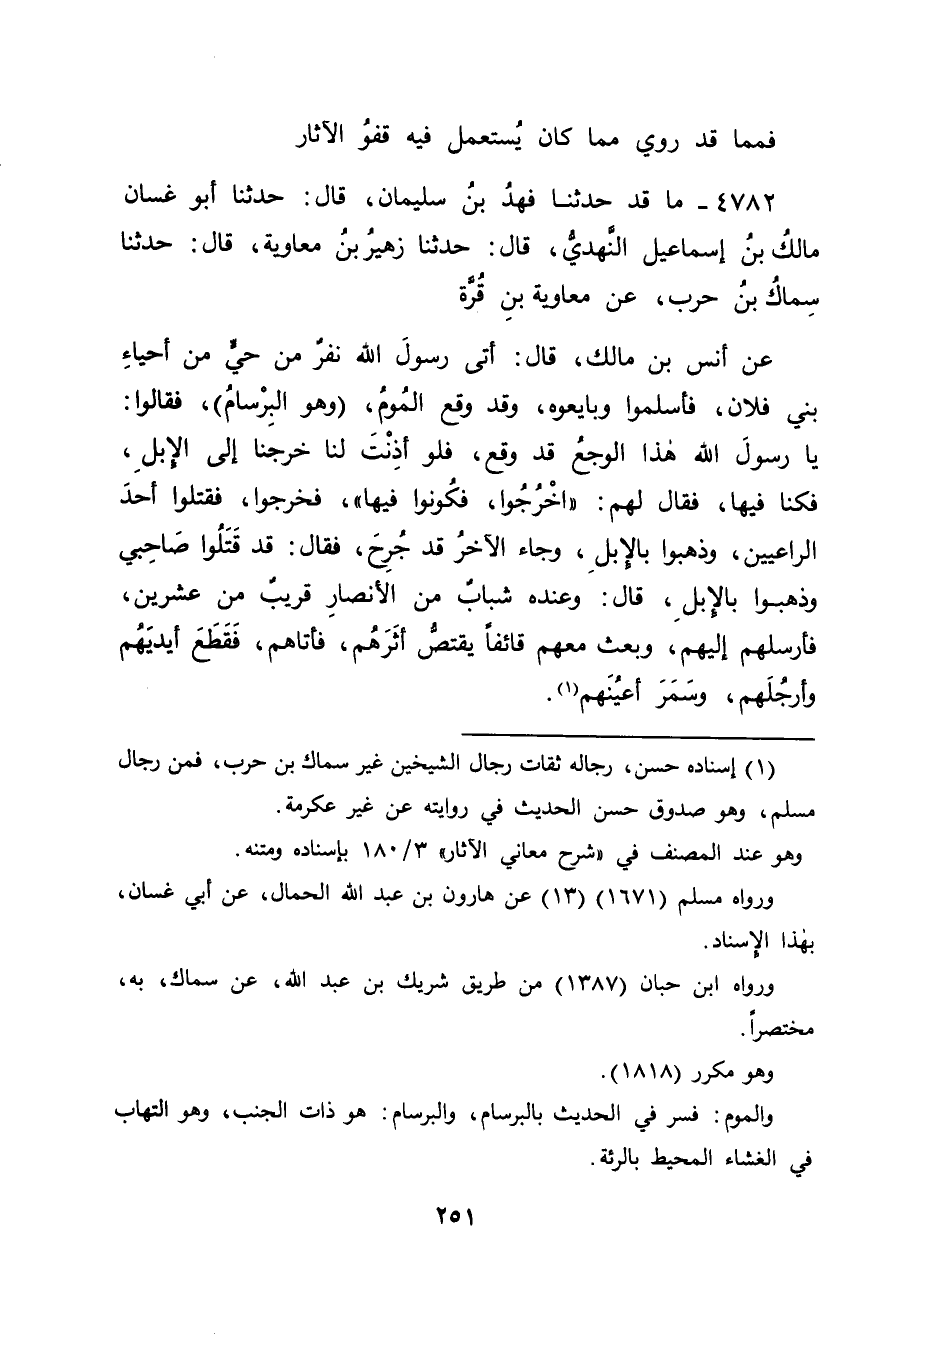 فمما قد روي مما كان يُستعمل فيه قفوُ الآثار
٤٧٨٢ - ما قد حدثنا فهدُ بنُ سليمان، قال: حدثنا أبو غسان
مالكُ بنُ إسماعيل النَّهديُّ، قال: حدثنا زهيرُ بنُ معاوية، قال: حدثنا
سِماكُ بنُ حرب، عن معاوية بنِ قُرَّة
عن أنس بن مالك، قال: أتى رسولَ الله نفرٌ من حيٍّ من أحياءِ
بني فلان، فأسلموا وبايعوه، وقد وقع المُومُ، (وهو البِرْسامُ)، فقالوا:
يا رسولَ الله هٰذا الوجعُ قد وقع، فلو أذِنْتَ لنا خرجنا إلى الإِبلِ،
فكنا فيها، فقال لهم: «اخْرُجُوا، فكُونوا فيها»، فخرجوا، فقتلوا أحدَ
الراعيين، وذهبوا بالإِبلِ، وجاء الآخرُ قد جُرِحَ، فقال: قد قَتَلُوا صَاحِبي
وذهبوا بالإِبلِ، قال: وعنده شبابٌ من الأنصارِ قريبٌ من عشرين،
فأرسلهم إليهم، وبعث معهم قائفاً يقتصُّ أثَرَهُم، فأتاهم، فَقَطَعَ أيديَهُم
وأرجُلَهم، وسَمَرَ أعيُنَهم(١).
(١) إسناده حسن، رجاله ثقات رجال الشيخين غير سماك بن حرب، فمن رجال
مسلم، وهو صدوق حسن الحديث في روايته عن غير عكرمة.
وهو عند المصنف في «شرح معاني الآثار» ١٨٠/٣ بإسناده ومتنه.
ورواه مسلم (١٦٧١) (١٣) عن هارون بن عبد الله الحمال، عن أبي غسان،
بهٰذا الإِسناد.
ورواه ابن حبان (١٣٨٧) من طريق شريك بن عبد الله، عن سماك، به،
مختصراً.
وهو مكرر (١٨١٨).
والموم: فسر في الحديث بالبرسام، والبرسام: هو ذات الجنب، وهو التهاب
في الغشاء المحيط بالرئة.
٢٥١